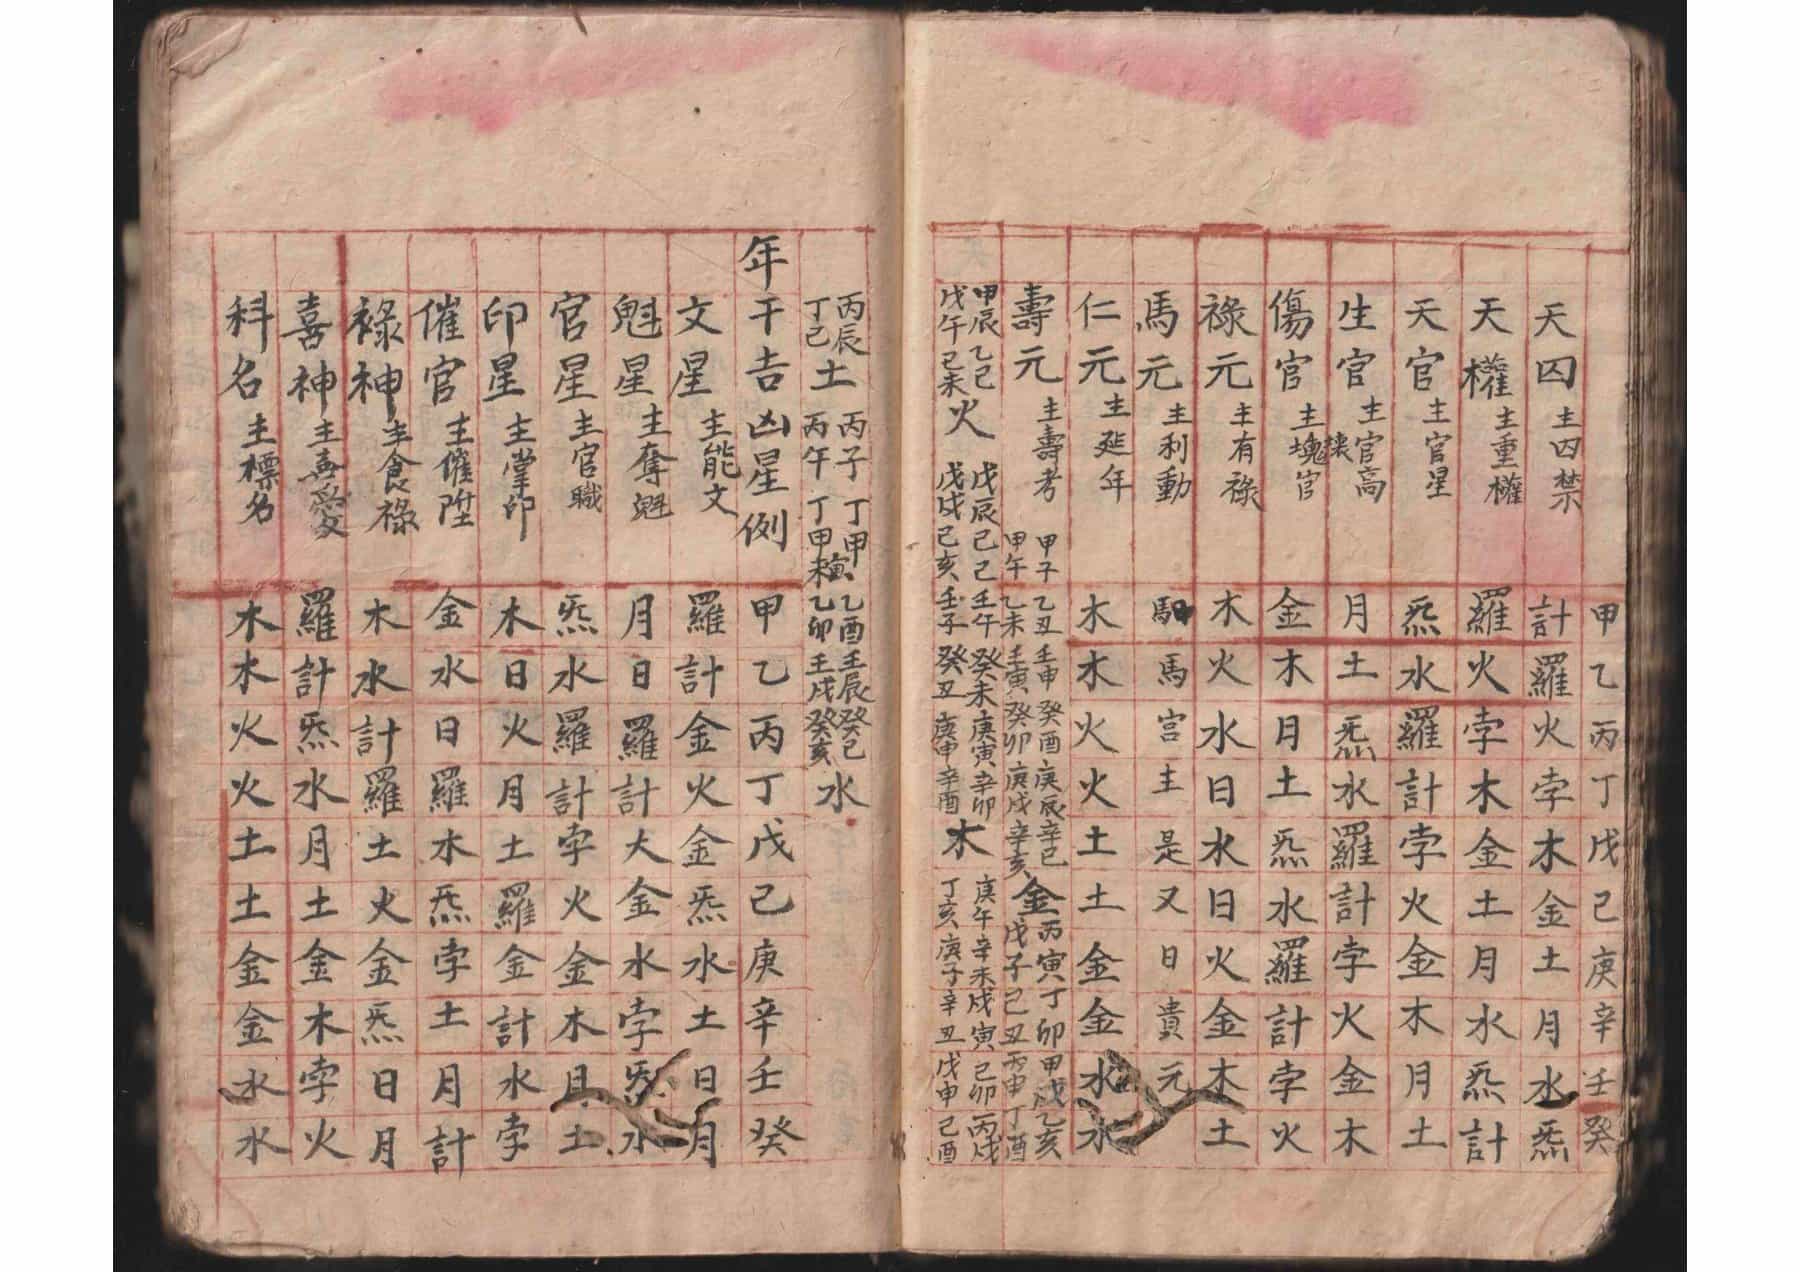 甲乙丙丁戊己庚辛壬癸
天囚主囚禁 計羅火孛木金土月水炁
天權主重權 羅火孛木金土月水炁計
天官主官星 炁水羅計孛火金木月土
生官主官高 月土炁水羅計孛火金木
傷官主壞官 金木月土炁水羅計孛火
祿元主有祿 木火水日水日火金木土
馬元主利動 馬宮主是又日貴元
仁元主延年 木木火火土土金金水水
壽元主壽考 甲子乙丑壬申癸酉庚辰辛巳
甲午乙未壬寅癸卯庚戌辛亥金丙寅丁卯甲戌乙亥
戊子己丑丙申丁酉
甲辰乙巳
戊午己未火戊辰己巳壬午癸未庚寅辛卯
戊戌己亥壬子癸丑庚申辛酉木庚午辛未戊寅己卯丙戌
丁亥庚子辛丑戊申己酉
丙辰
丁巳土丙子丁 甲寅乙酉壬辰癸巳
丙午丁未 甲乙卯壬戌癸亥水
年干吉凶星例 甲乙丙丁戊己庚辛壬癸
文星主能文 羅計金火金炁水土日月
魁星主奪魁 月日羅計大金水孛炁水
官星主官職 炁水羅計孛火金木月土
印星主掌印 木日火月土羅金計水孛
催官主催陞 金水日羅木炁孛土月計
祿神主食祿 木水計羅土火金炁日月
喜神主喜愛 羅計炁水月土金木孛火
科名主標名 木木火火土土金金水水